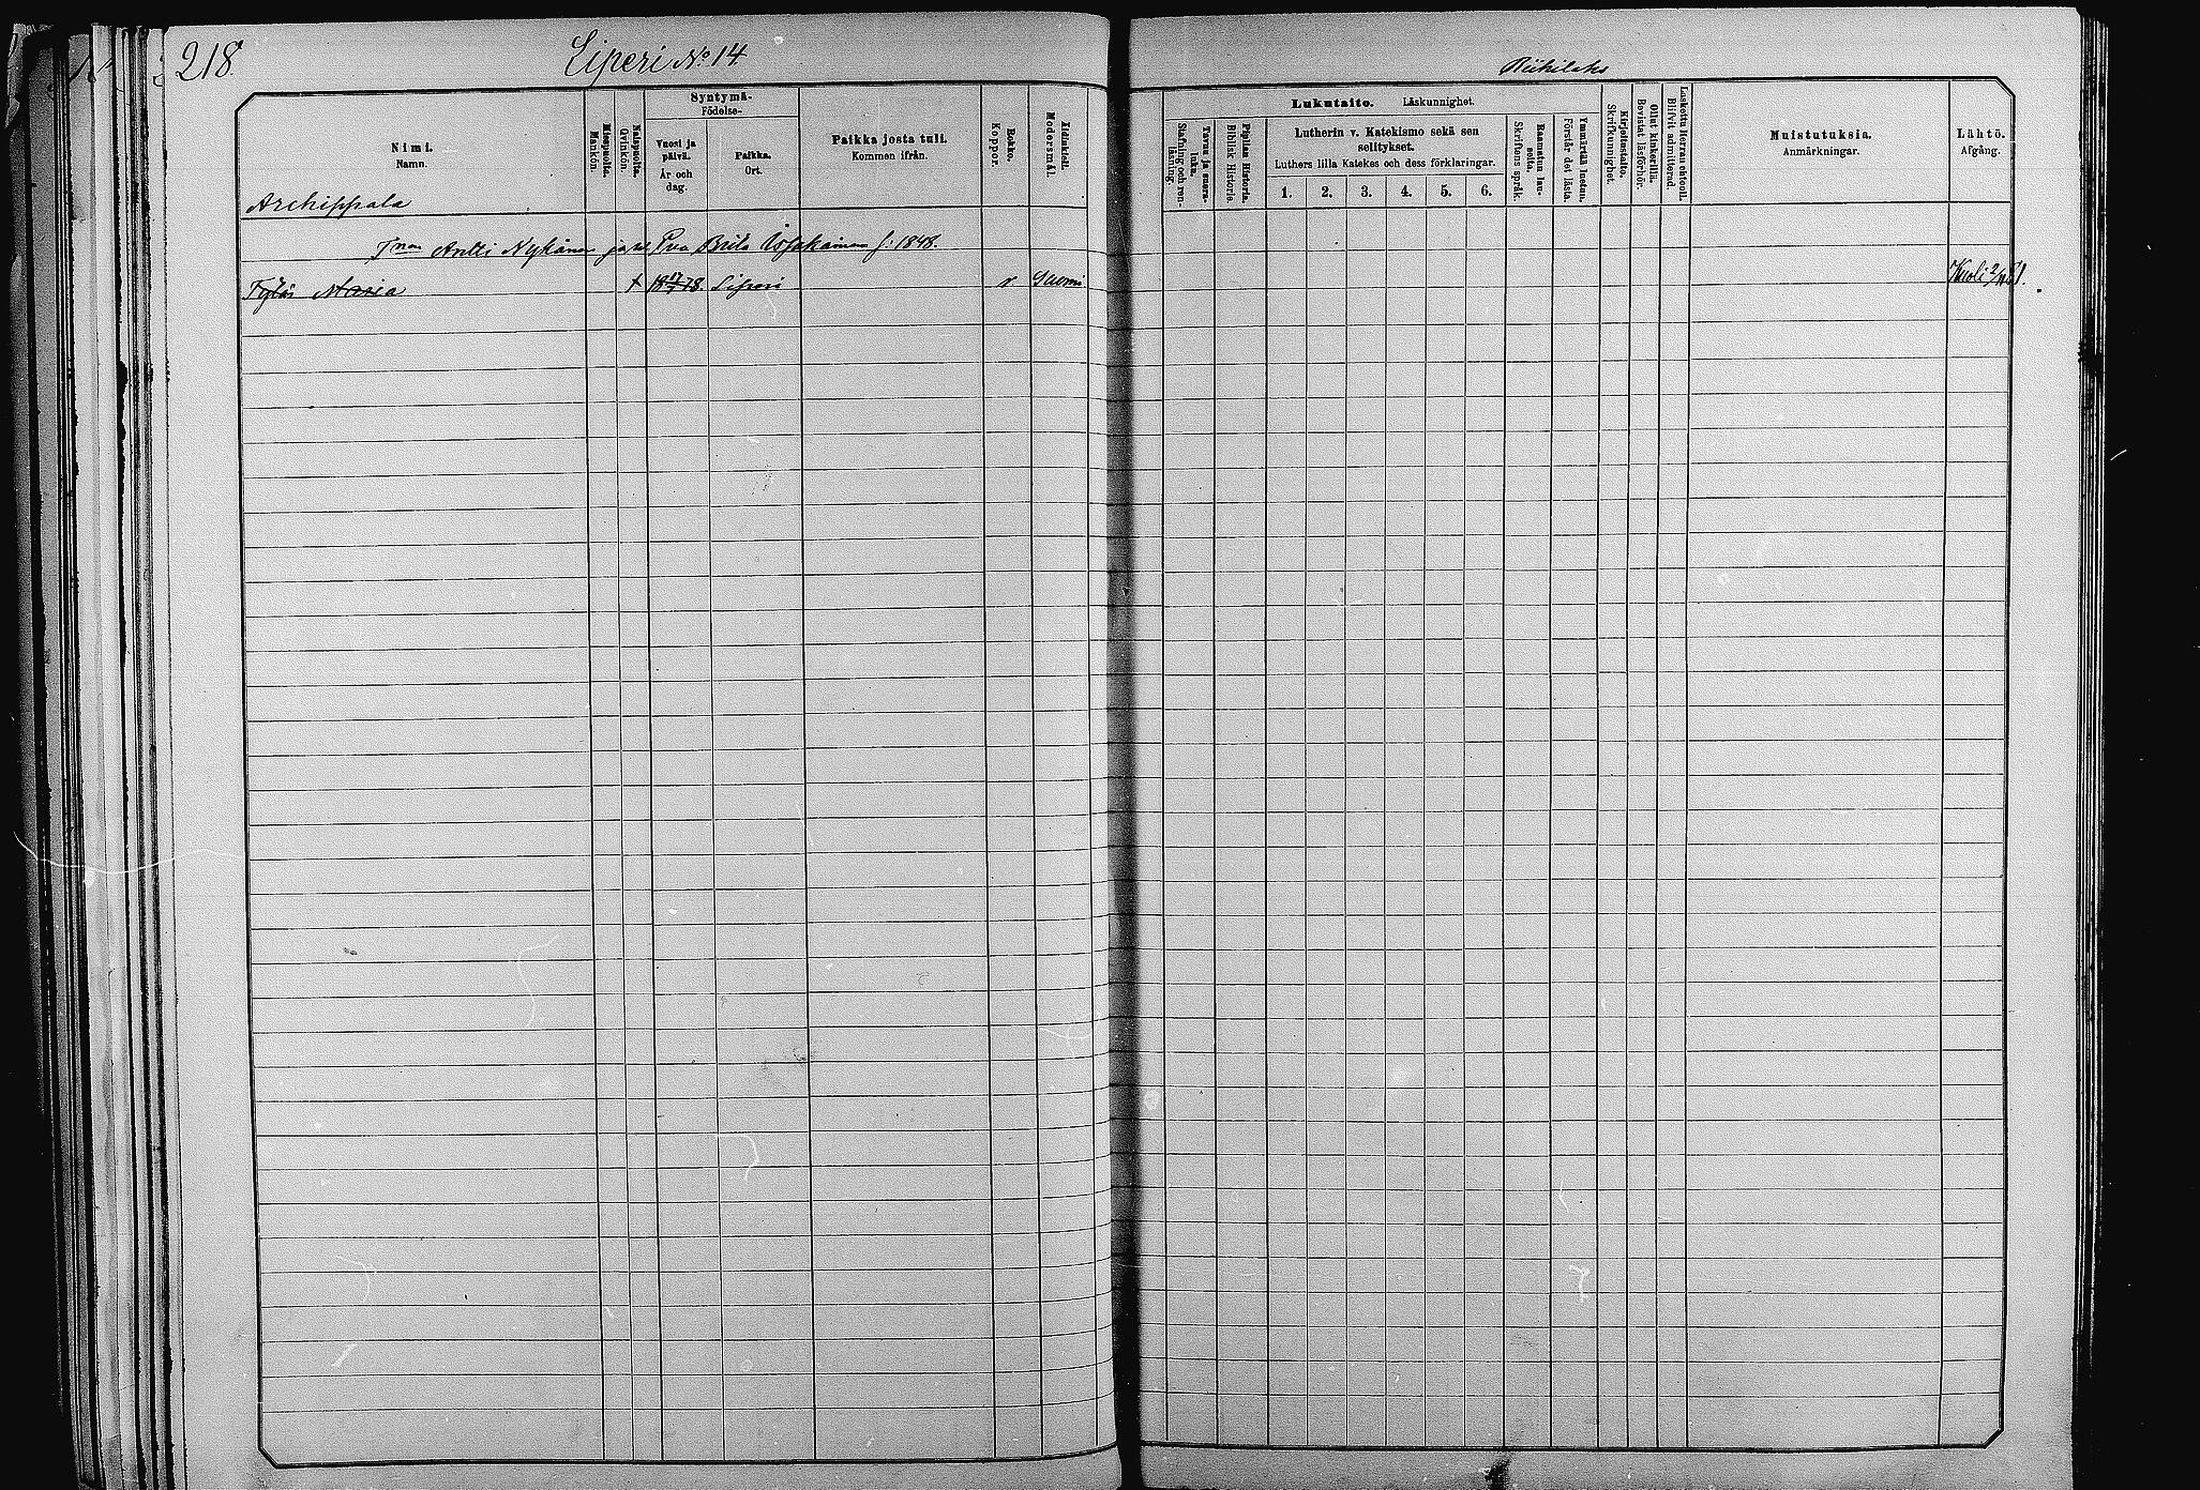 218.
Liperi No 14.
Riihilaks
Nimi.
Namn.
Miespuolta.
Mankön.
Naispuolta.
Qvinkön.
Syntymä-
Födelse-
Vuosi ja päivä.
År och dag.
Paikka.
Ort.
Paikka josta tuli.
Kommen ifrån.
Rokko.
Koppor.
Äidinkieli.
Modersmål.
Lukutaito. Läskunnighet.
Tavuu ja suora-luku.
Stafning och ren-läsning.
Piplian Historia.
Biblisk Historie.
Lutherin v. Katekismo sekä sen
selitykset.
Luthers lilla Katekes och dess förklaringar.
1. 2. 3. 4. 5. 6.
Raamatun lau-seita.
Skriftens språk.
Ymmärtää luetun.
Förstår det lästa.
Kirjoitustaito.
Skrifkunnighet.
Ollut kinkerillä.
Bevistat läsförhör.
Laskettu Herran ehtool.
Blifvit admitterad.
Muistutuksia.
Anmärkningar.
Lähtö.
Afgång.
Archippala
Antti Nykänen ja v. Eva Brita f. 1848.
Tytär Maria 18 17/7 78. Liperi v Suomi Kuoli